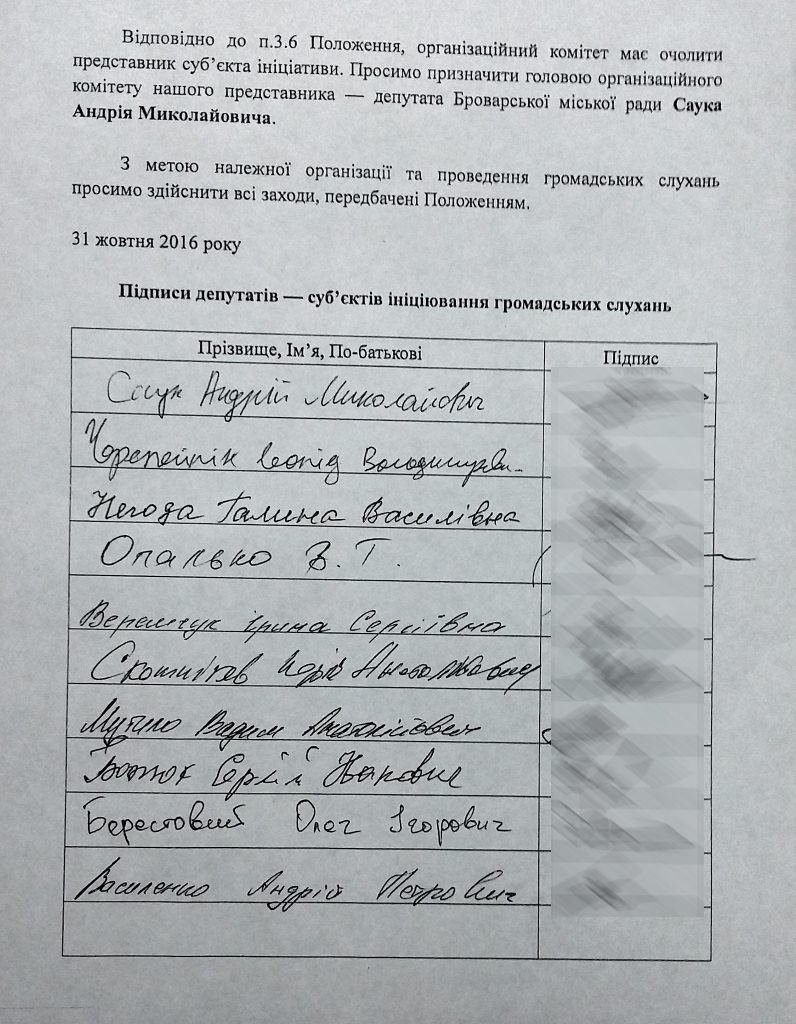 Відповідно до п.3.6 Положення, організаційний комітет має очолити
представник суб’єкта ініціативи. Просимо призначити головою організаційного
комітету нашого представника — депутата Броварської міської ради Саука
Андрія Миколайовича.
З метою належної організації та проведення громадських слухань
просимо здійснити всі заходи, передбачені Положенням.
31 жовтня 2016 року
Підписи депутатів — суб’єктів ініціювання громадських слухань
Прізвище, Ім’я, По-батькові Підпис
Саук Андрій Миколайович
Леонід
Негода Галина Василівна
Опалько В. Т.
Веремчук Ірина Сергіївна
Юрій Анатолійович
Вадим Анатолійович
Сергій Іванович
Берестовий Олег Ігорович
Василенко Андрій Петрович